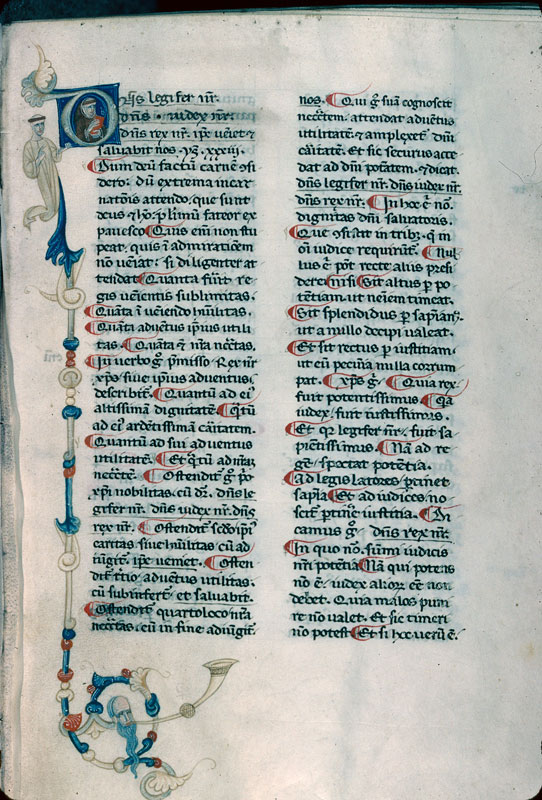 Dn̄s legifer nr̄.
dn̄s · iudex nr̄.
dn̄s rex nr̄. ip̄e ueiet ⁊
saluabit nos. yẜ. xxxiij.
Dum deū factū carnē ꝯsi
dero: dū extrema incar
natōis attendo. que sunt
deus ⁊ hō: p̱ limū fateor ex
pauesco. Quis eni non stu
peat, quis ī admirationem
nō ueniat: si diligenter at
tendat. Quanta fuīt re
gis uenientis sublimitas.
Quāta ī ueniendo hūilitas.
Quāti aduētus ip̄ius utili
tas. Quāta ē nr̄a nec̄c̄tas.
In uerbo g̊ p̄misso. Rex nr̄
xp̄s siue ip̄ius aduentus,
describit̄. Quantū ad ei᷒
altissimā dignitatē. Q̄tū
ad ei᷒ ardētissimā cāitatem.
Quantū ad sui aduentus
utilitatē. Et q̄tū ad nr̄am
nec̄c̄tē. Ostendit̄ g̊ p̱
xp̄i nobilitas. cū dr̄. dn̄s le
gifer nr̄. dn̄s iudex nr̄. dn̄s
rex nr̄. Ostendit̄ scd̄o ip̄i᷒
caritas siue hūilitas. cū ad
iūgit̄. ip̄e ueniet. Osten
dit̄ t̄cio, aduētus utilitas.
cū subinfert̄. et saluabit.
Ostendit̄ quarto loco nr̄a
nec̄c̄tas. cū in fine adiūgit̄.
nos. Qui g̊ suā cognoscit
nec̄c̄tem. attendat aduētus
utilitatē. ⁊ amplexet̄ dn̄i
cāitatē. Et sic securus acce
dat ad dn̄i potātem. ⁊ dicat.
dn̄s legifer nr̄. dn̄s iudex nr̄.
dn̄s rex nr̄. In hoc ē no.
dignitas dn̄i saluatoris.
Que ꝯsistit in trib᷒. q̄ in
oī iudice requirūt̄. Nul
lus ē pōt recte aliis presi
dere nisi Sit altus p̱ po
tētiam. ut neīem timeat.
Sit splendidus p̱ sapiam.
ut a nullo decipi ualeat.
Et sit rectus p̱ iustitiam.
ut eū pecūia nulla corrum
pat. xp̄s g̊. Quia rex.
fuit potentissimus. Q̄a
iudex, fuit iustissimus.
Et q̄ legifer nr̄, fuit sa
pietissimus. Nā ad re
gē, spectat potētia.
Ad legislatores, p̱tinet
sapīa. Et ad iudices no
scit̄ p̱tinē iustitia. Di
camus g̊. dn̄s rex nr̄.
In quo no. sūmi iudicis
nr̄i potētia. Nā qui potens
nō ē, iudex alioꝝ eē
debet. Quia malos puni
re nō ualet. Et sic timeri
nō potest. Et si hoc uerū ē.